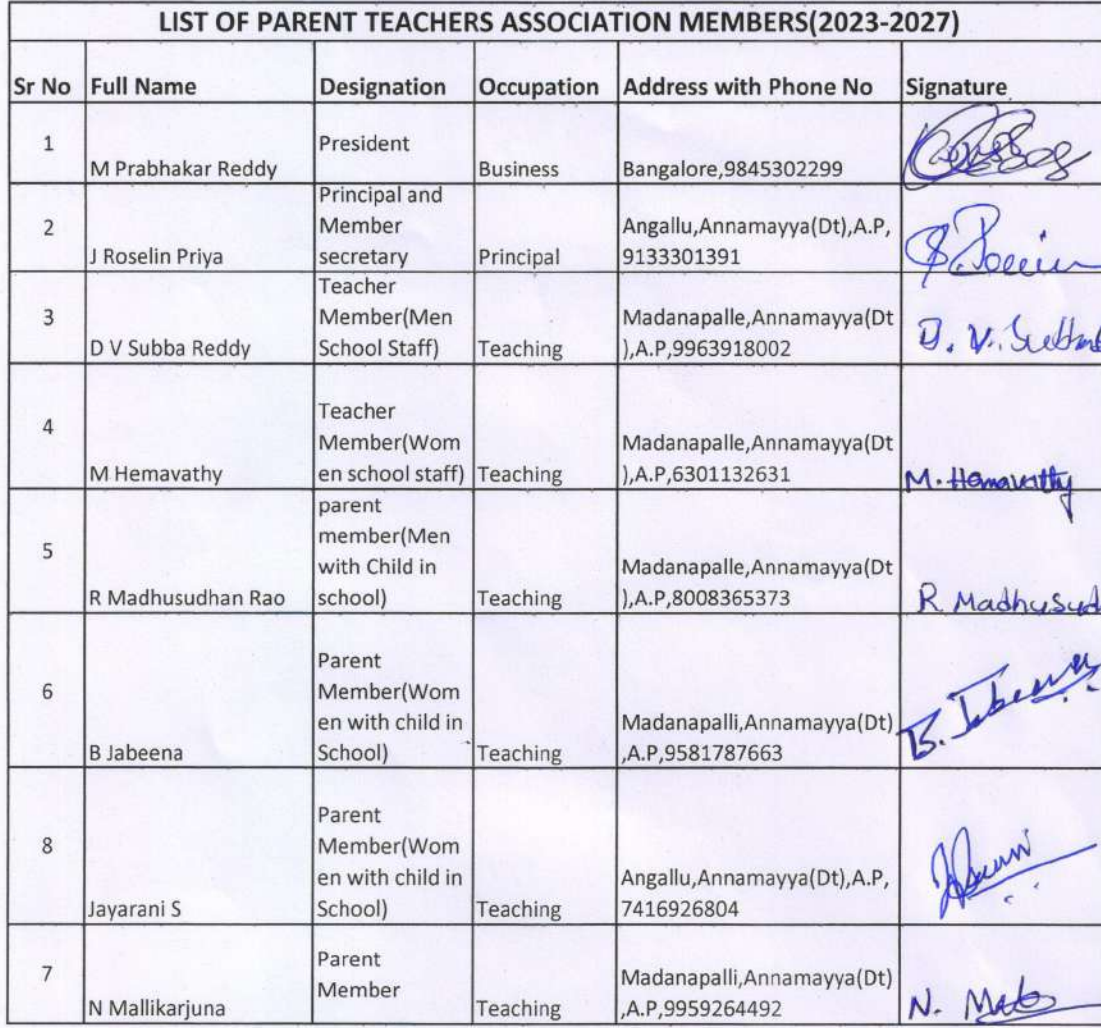 LIST OF PARENT TEACHERS ASSOCIATION MEMBERS(2023-2027)
Sr No Full Name Designation Occupation Address with Phone No Signature
1
M Prabhakar Reddy
President
Business
Bangalore,9845302299
2
J Roselin Priya
Principal and
Member
secretary
Principal
Angallu,Annamayya(Dt),A.P,
9133301391
3
D V Subba Reddy
Teacher
Member(Men
School Staff)
Teaching
Madanapalle,Annamayya(Dt
),A.P,9963918002
D. V. Subba
4
M Hemavathy
Teacher
Member(Wom
en school staff)
Teaching
Madanapalle,Annamayya(Dt
),A.P,6301132631
M. Hemavathy
5
R Madhusudhan Rao
parent
member(Men
with Child in
school)
Teaching
Madanapalle,Annamayya(Dt
),A.P,8008365373
R. Madhusud
6
B Jabeena
Parent
Member(Wom
en with child in
School)
Teaching
Madanapalli,Annamayya(Dt)
,A.P,9581787663
B. Jabeena
8
Jayarani S
Parent
Member(Wom
en with child in
School)
Teaching
Angallu,Annamayya(Dt),A.P,
7416926804
7
N Mallikarjuna
Parent
Member
Teaching
Madanapalli,Annamayya(Dt)
,A.P,9959264492
N.